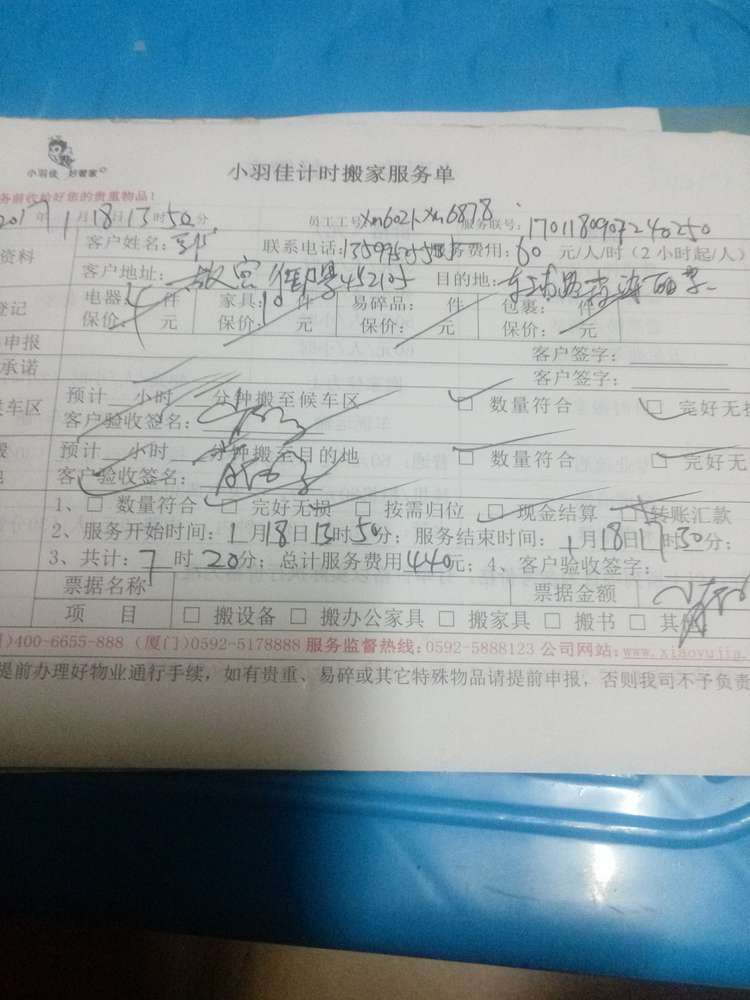 小羽佳 好管家
小羽佳计时搬家服务单
务前收拾好您的贵重物品!
2017年1月18日13时50分 员工工号xm6021xm6878 服务联号:1701180907240250
资料 客户姓名: 联系电话: 服务费用:60元/人/时(2小时起/人)
客户地址: 目的地:
登记 电器:4件 家具:10件 易碎品: 件 包裹: 件
保价: 元 保价: 元 保价: 元 保价: 元
申报 客户签字:
承诺 客户签字:
候车区 预计 小时 分钟搬至候车区 □ 数量符合 □ 完好无损
客户验收签名:
预计 小时 分钟搬至目的地 □ 数量符合 □ 完好无
客户验收签名:
1、□ 数量符合 □ 完好无损 □ 按需归位 □ 现金结算 □ 转账汇款
2、服务开始时间:1月18日13时50分;服务结束时间:1月18日17时30分;
3、共计:7时20分;总计服务费用440元;4、客户验收签字:
票据名称 票据金额
项 目 □ 搬设备 □ 搬办公家具 □ 搬家具 □ 搬书 □ 其他
)400-6655-888 (厦门)0592-5178888 服务监督热线:0592-5888123 公司网站:www.xiaoyujia.
提前办理好物业通行手续,如有贵重、易碎或其它特殊物品请提前申报,否则我司不予负责